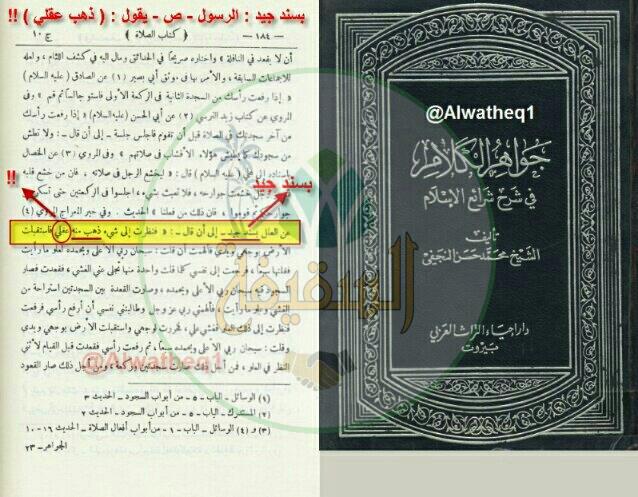 بسند جيد : الرسول - ص - يقول : ( ذهب عقلي ) !!
ج ١٠
( كتاب الصلاة )
— ١٨٤ —
أن لا يقعد في النافلة » واختاره صريحاً في الحدائق ومال اليه في كشف اللثام ، ولعله
للاجماعات السابقة ، والأمر بها في موثق أبي بصير (١) عن الصادق ( عليه السلام )
« إذا رفعت رأسك من السجدة الثانية في الركعة الأولى فاستو جالساً ثم قم » وفي
المروي عن كتاب زيد النرسي (٢) عن أبي الحسن (عليه السلام) « إذا رفعت رأسك
من آخر سجدتك في الصلاة قبل أن تقوم فاجلس جلسة — إلى أن قال — : ولا تطش
من سجودك كما يطيش هؤلاء الأقشاب في صلاتهم » وفي المروي (٣) عن الخصال
باسناده إلى علي ( عليه السلام ) قال : « ليخشع الرجل في صلاته ، فان من خشع قلبه
خشعت جوارحه ، فلا يعبث بشيء ، اجلسوا في الركعتين حتى تسكن
جوارحكم ثم قوموا ، فان ذلك من فعلنا » الحديث . وفي خبر المعراج المروي (٤)
عن العلل بسند جيد — إلى أن قال — : « فنظرت إلى شيء ذهب منه عقلي فاستقبلت
الأرض بوجهي ويدي فألهمت أن قلت : سبحان ربي الأعلى وبحمده لعلو ما رأيت
فقلتها سبعاً ، فرجعت إلي نفسي كلما قلت واحدة منها تجلى عني الغشي ، فقعدت فصار
السجود فيه سبحان ربي الأعلى وبحمده ، وصارت القعدة بين السجدتين استراحة من
الغشي وعلو ما رأيت ، فألهمني ربي عز وجل وطالبتني نفسي أن أرفع رأسي فرفعت
فنظرت إلى ذلك العلو فغشي علي ، فخررت لوجهي واستقبلت الأرض بوجهي ويدي
وقلت : سبحان ربي الأعلى وبحمده سبعاً ، ثم رفعت رأسي فقعدت قبل القيام لأثني
النظر في العلو ، فمن أجل ذلك صارت سجدتين وركعة ، ومن أجل ذلك صار القعود
(١) الوسائل — الباب — ٥ — من أبواب السجود — الحديث ٣
(٢) المستدرك — الباب — ٥ — من أبواب السجود — الحديث ٢
(٣) و (٤) الوسائل — الباب — ١ — من أبواب أفعال الصلاة — الحديث ١٦ — ١٠
الجواهر — ٢٣
بسند جيد
!!
@Alwatheq1
السقيفة
@Alwatheq1
جواهر الكلام
في شرح شرائع الإسلام
تأليف
الشيخ محمد حسن النجفي
دار احياء التراث العربي
بيروت